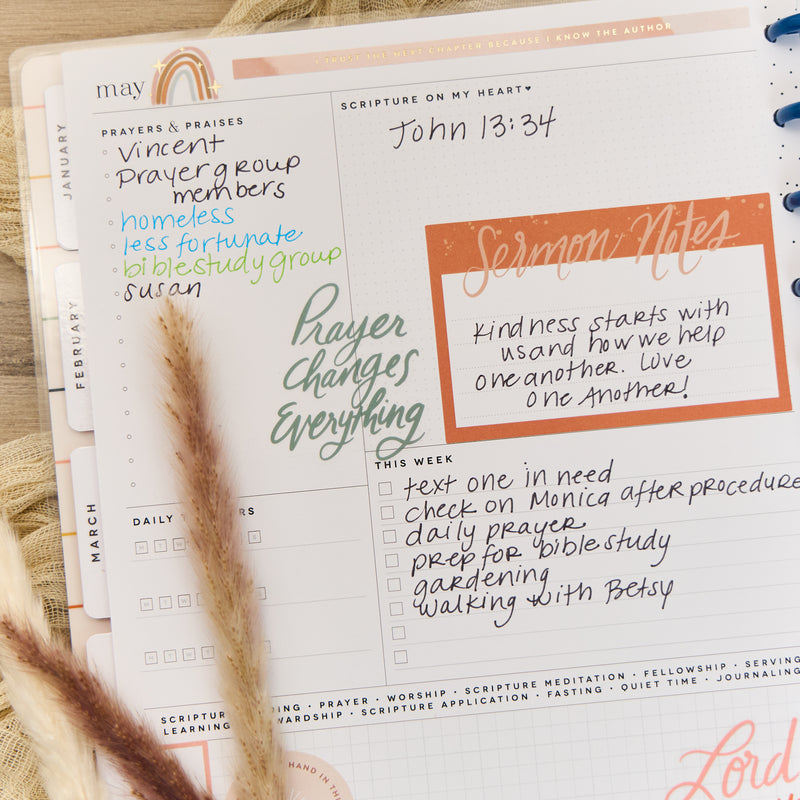 may
I TRUST THE NEXT CHAPTER BECAUSE I KNOW THE AUTHOR
JANUARY
FEBRUARY
MARCH
PRAYERS & PRAISES
Vincent
Prayer group
members
homeless
less fortunate
bible study group
susan
SCRIPTURE ON MY HEART♥
John 13:34
Sermon Notes
Kindness starts with
us and how we help
one another. Love
One Another!
Prayer
Changes
Everything
THIS WEEK
text one in need
check on Monica after procedure
daily prayer
prep for bible study
gardening
walking with Betsy
DAILY
M T W S
M T W
M T W T
SCRIPTURE · PRAYER · WORSHIP · SCRIPTURE MEDITATION · FELLOWSHIP · SERVING
LEARNING · SCRIPTURE APPLICATION · FASTING · QUIET TIME · JOURNALING
HAND IN
Lord